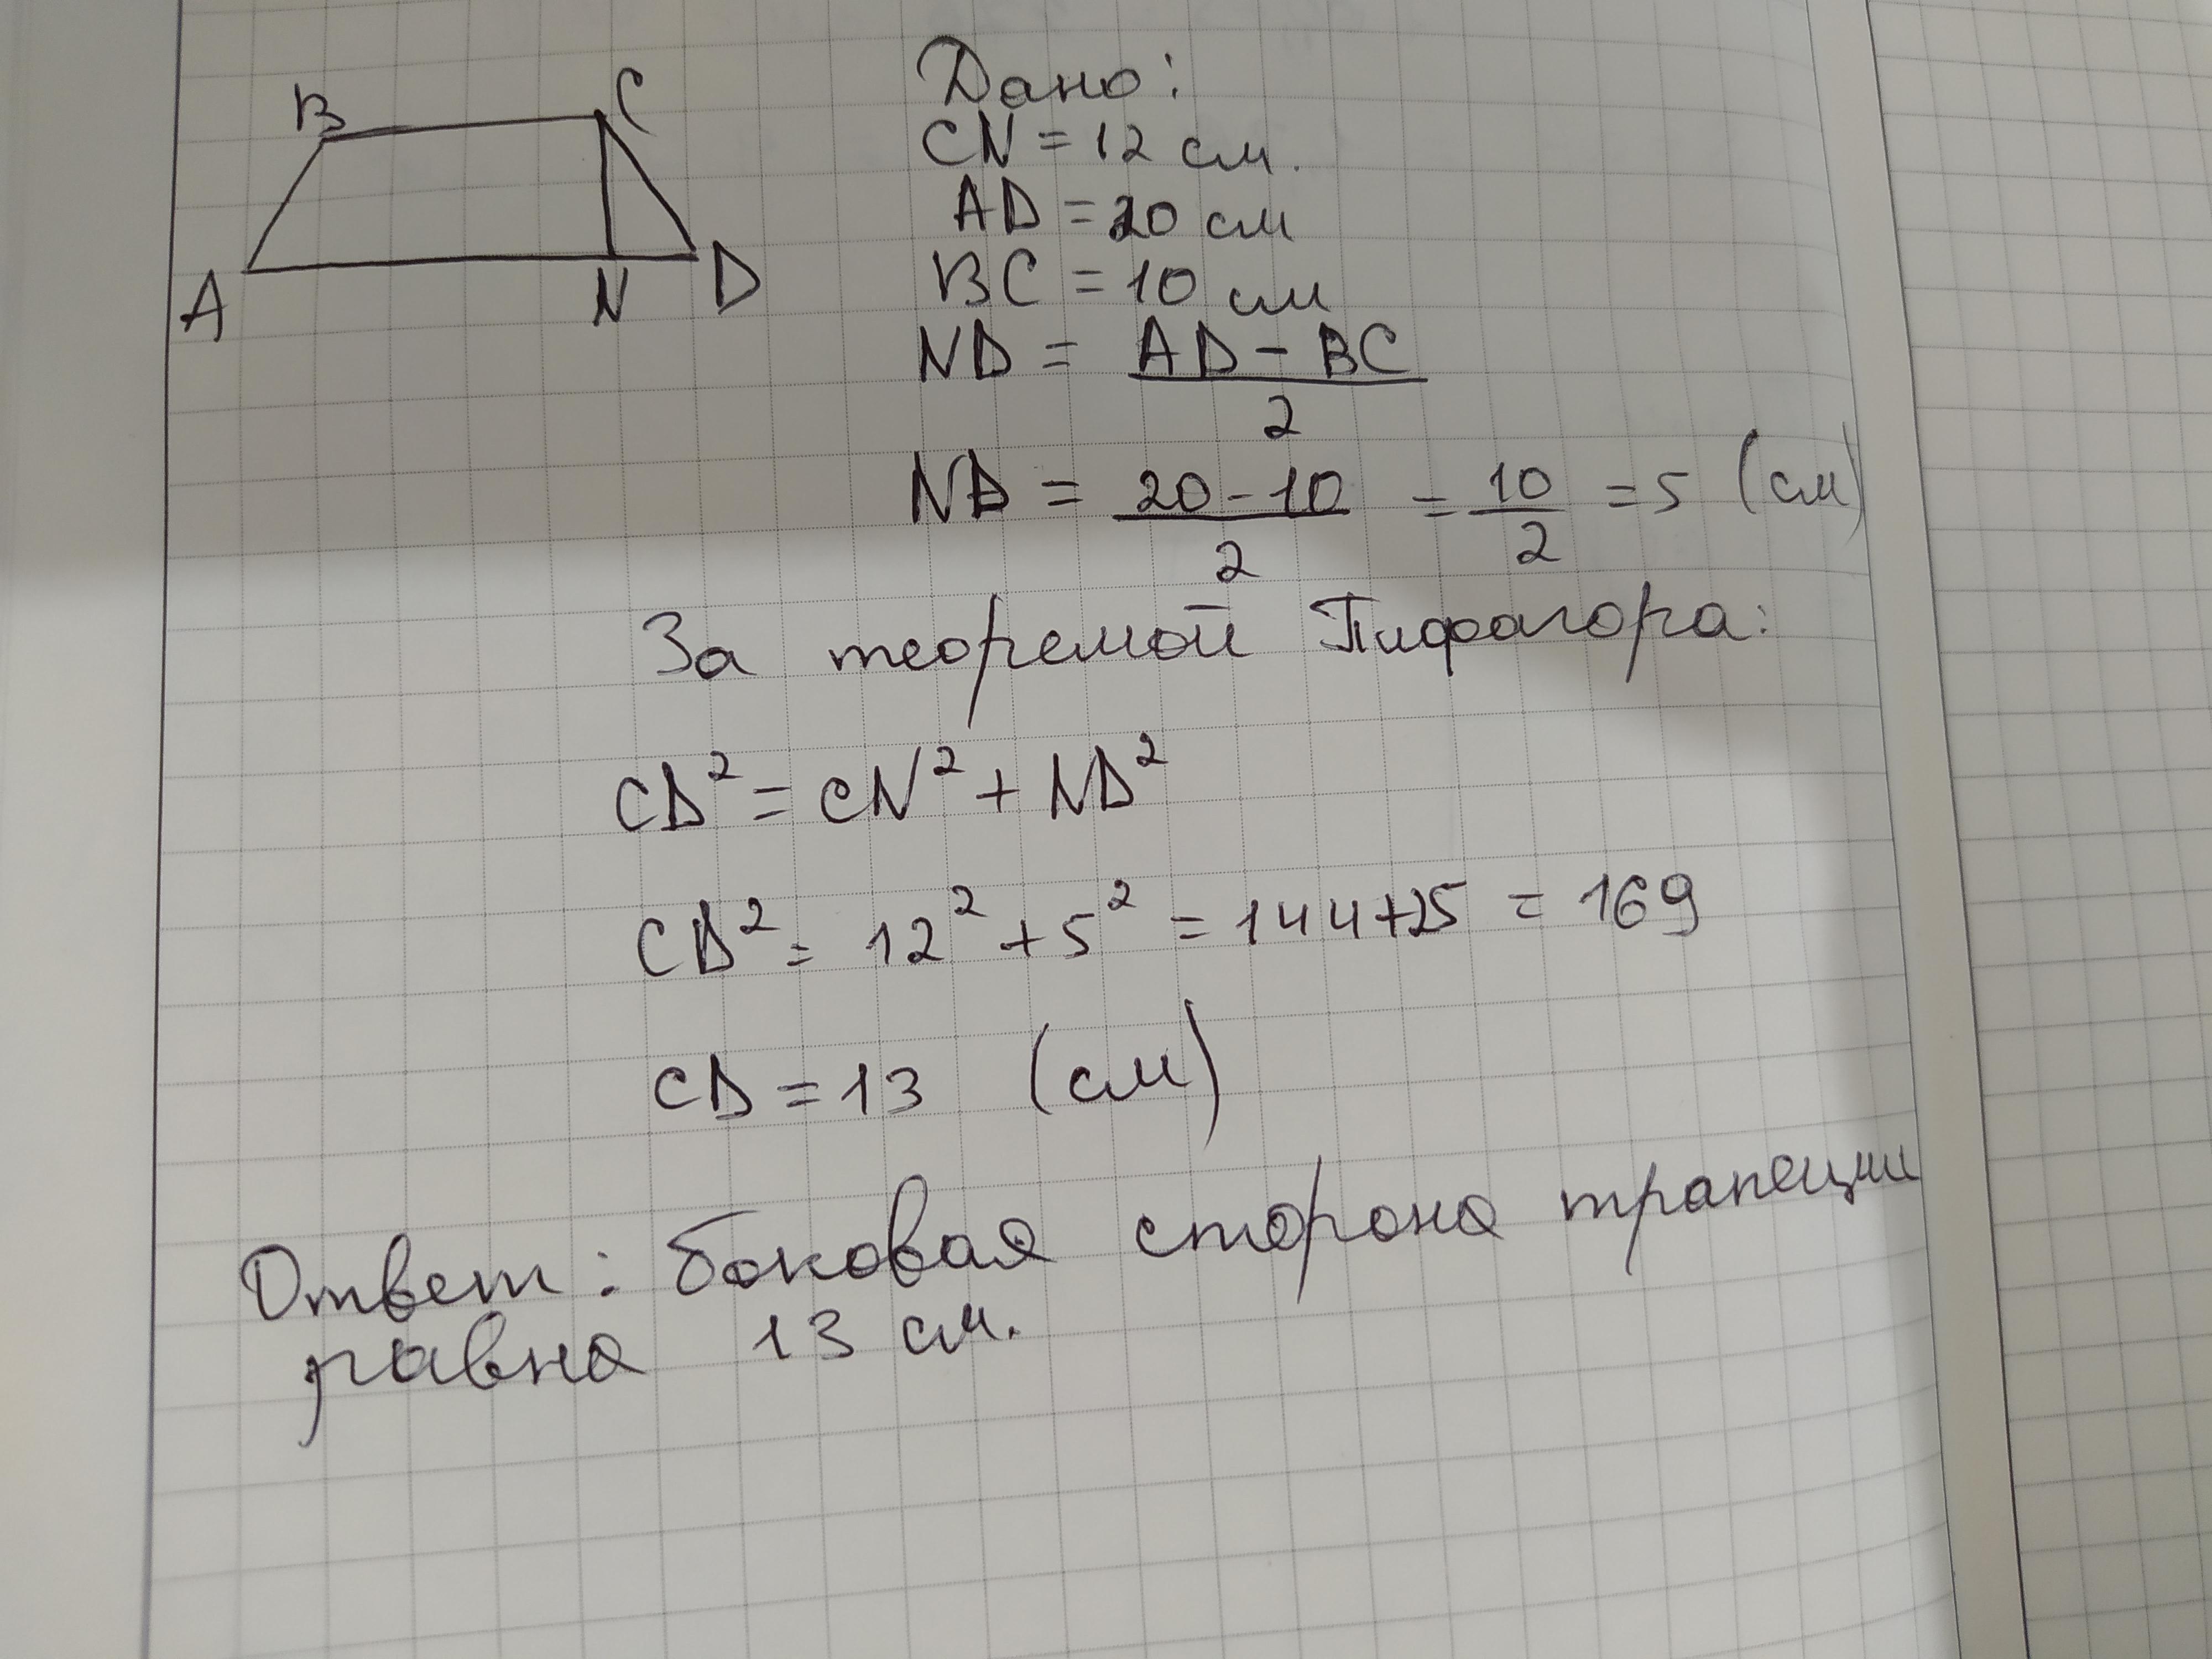 B C
A N D
Дано:
CN = 12 см.
AD = 20 см
BC = 10 см
ND = AD - BC / 2
ND = 20 - 10 / 2 = 10 / 2 = 5 (см)
За теоремой Пифагора:
CD² = CN² + ND²
CD² = 12² + 5² = 144 + 25 = 169
CD = 13 (см)
Ответ: боковая сторона трапеции
равна 13 см.